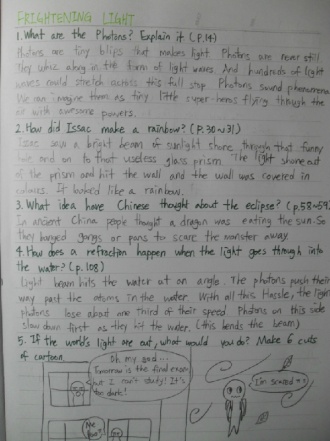 FRIGHTENING LIGHT
1. What are the Photons? Explain it (p.14)
Photons are tiny blips that makes light Photons are never still
They whiz along in the form of light waves. And hundreds of light
waves could stretch across this full stop Photons sound phenomena
We can imagine them as tiny little super-heros flying through the
air with awesome powers.
2. How did Issac make a rainbow? (p.30~31)
Issac saw a bright beam of sunlight shone through that funny
hole and on to that useless glass prism The light shone out
of the prism and hit the wall and the wall was covered in
colours. It looked like a rainbow.
3. What idea have Chinese thought about the eclipse? (p.58~59)
In ancient China people thought a dragon was eating the sun. So
they banged gongs or pans to scare the monster away.
4. How does a refraction happen when the light goes through into
the water? (p.108)
Light beam hits the water at an angle. The photons push their
way past the atoms in the water With all this Hassle, the light
photons lose about one third of their speed Photons on this side
slow down first as they hit the water. (this bends the beam)
5. If the world's light are out, what would you do? Make 6 cuts
of cartoon
Oh my god...
Tomorrow is the final exam
but I can't study! It's
too dark!
I'm scared
Me too!